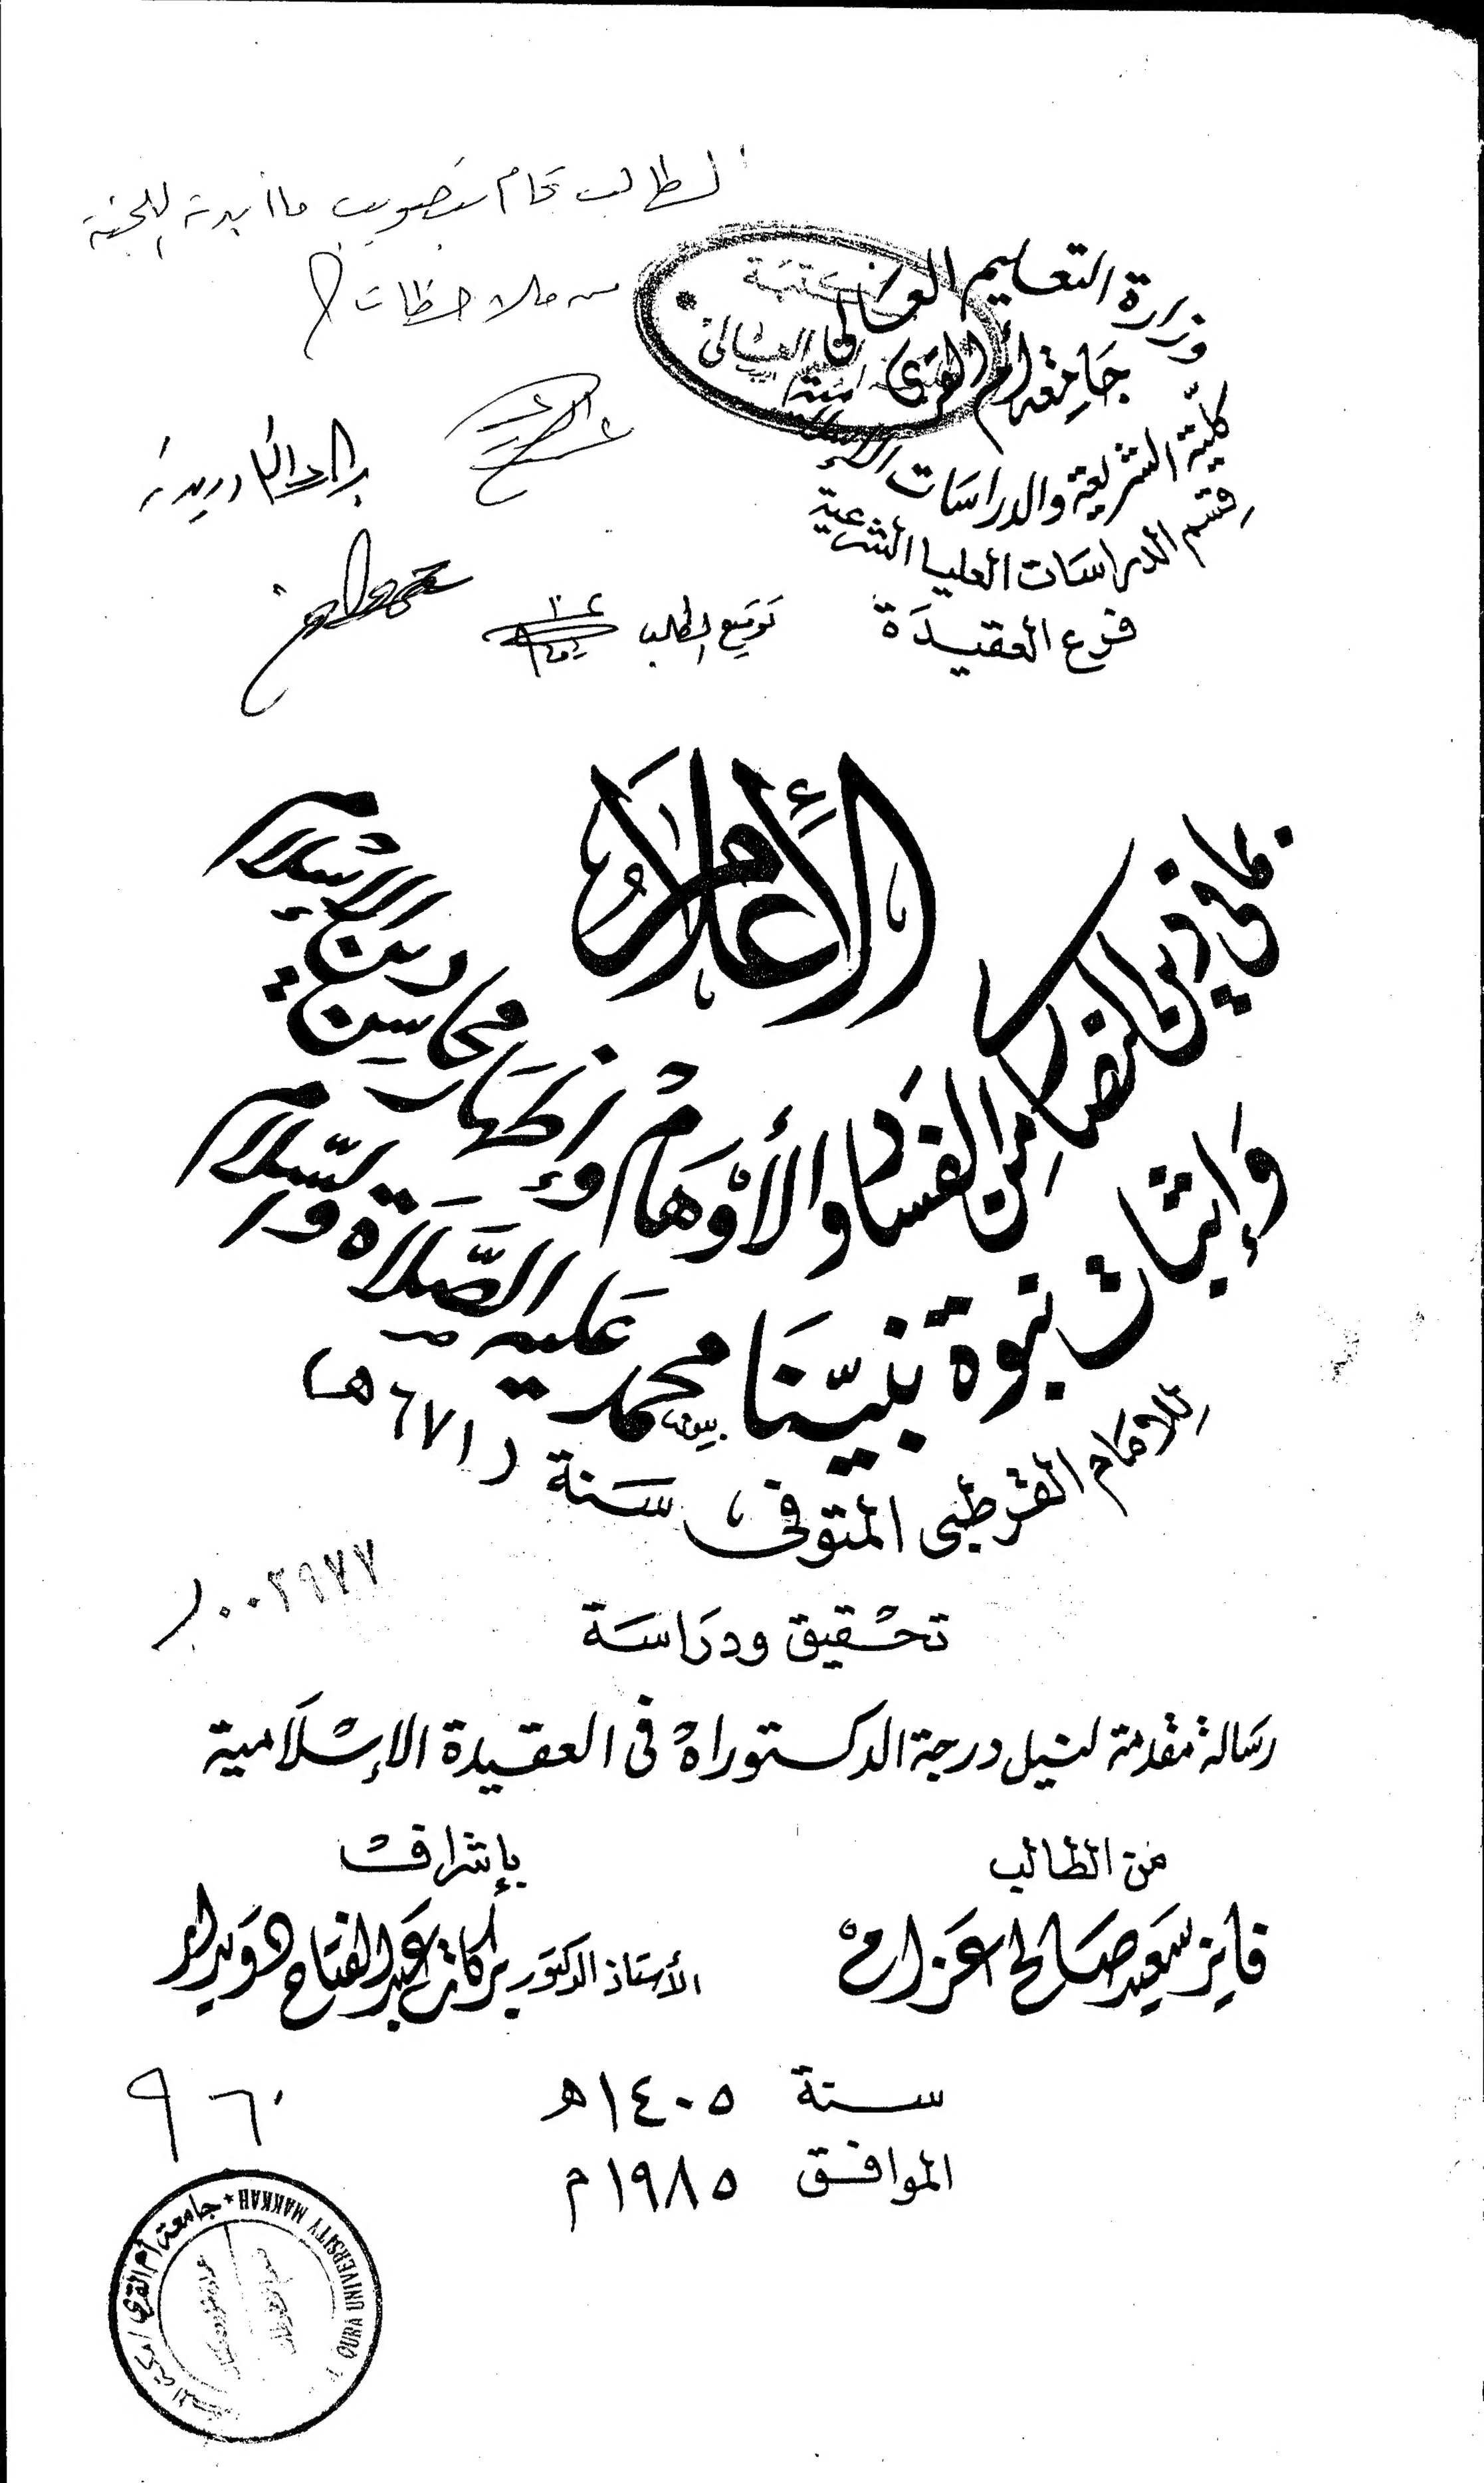 الطالب قام بتصويب ما أبدته اللجنة
من ملاحظات
وزارة التعليم العالى
جامعة أم القرى
كلية الشريعة والدراسات الإسلامية
قسم الدراسات العليا الشرعية
فرع العقيدة
توقيع الطالب
الإعلام
بما في دين النصارى من الفساد والأوهام وإظهار محاسن دين الإسلام
وإثبات نبوة نبينا محمد عليه الصلاة والسلام
للإمام القرطبى المتوفى سنة (٦٧١هـ)
١٠٠٢٩٧٧
تحقيق ودراسة
رسالة مقدمة لنيل درجة الدكتوراه فى العقيدة الإسلامية
من الطالب
فايز سعيد صالح عزام
بإشراف
الأستاذ الدكتور بركات عبد الفتاح دويدار
سنة ١٤٠٥هـ
الموافق ١٩٨٥م
٩٦٠
جامعة أم القرى
QURA UNIVERSITY MAKKAH